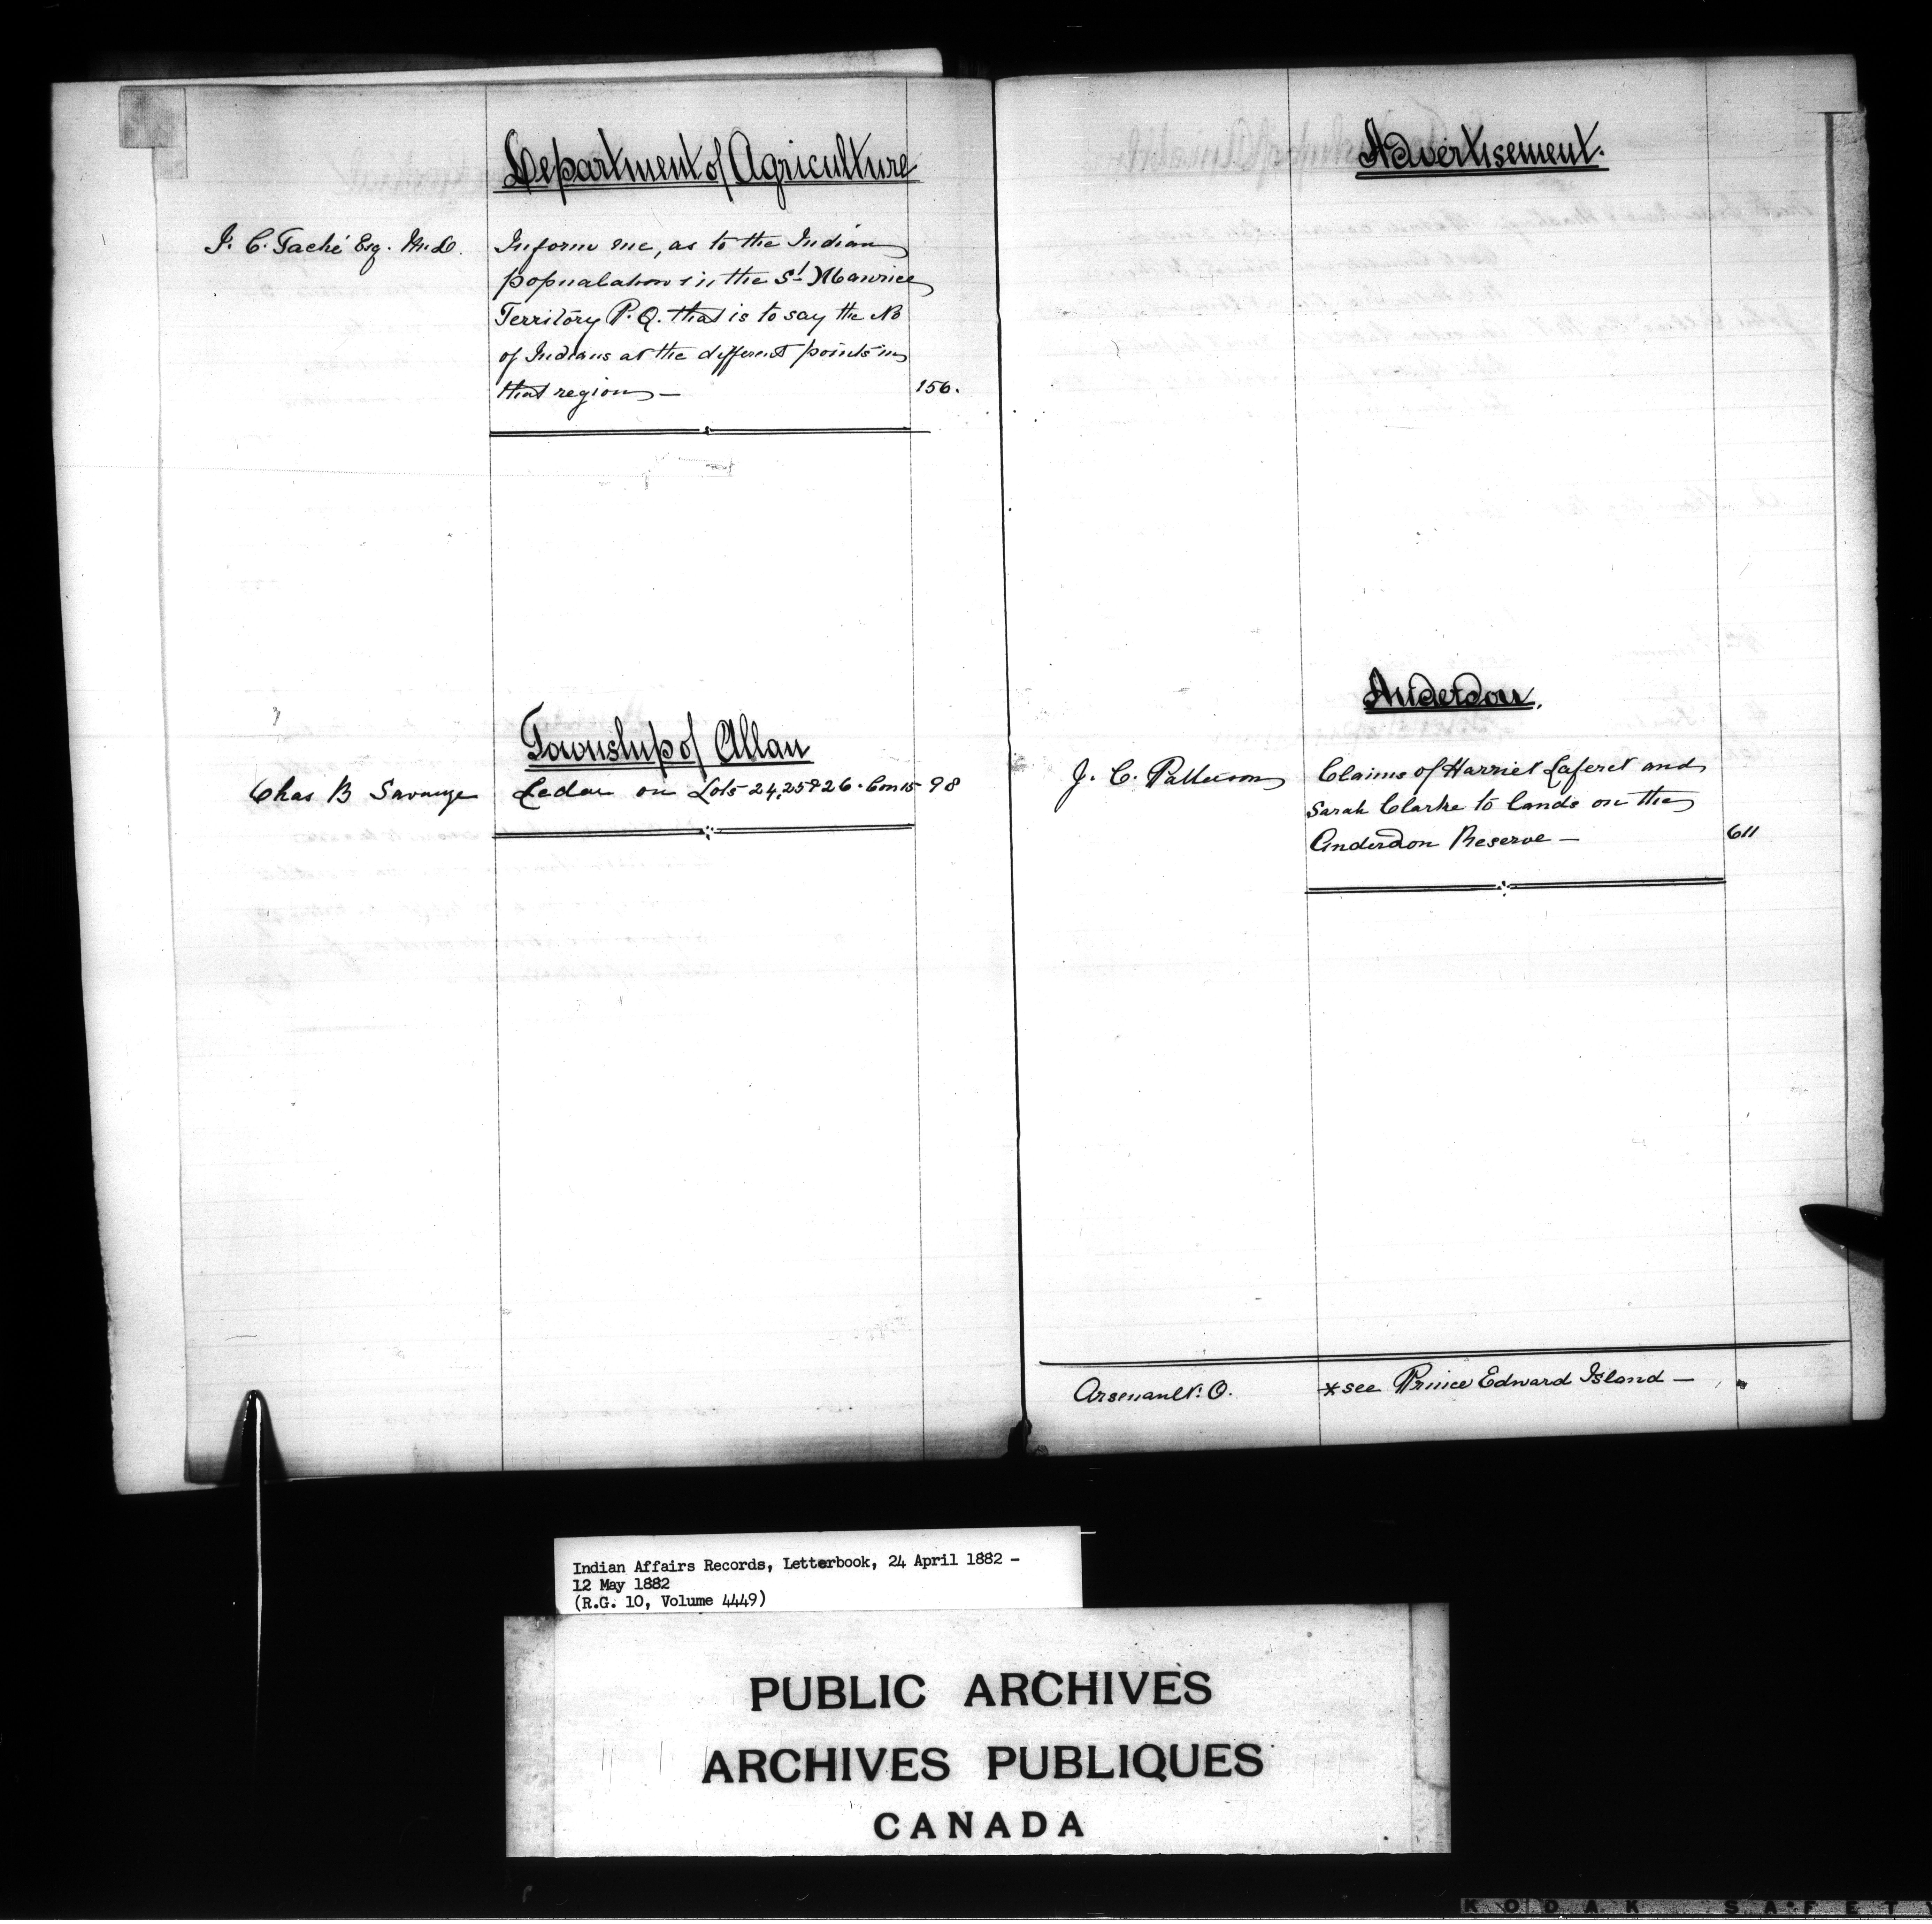 Department of Agriculture
J. C. Taché Esq. M.D.
Inform me, as to the Indian
popualation in the St Maurice
Territory P.Q. that is to say the No
of Indians at the different points in
that region — 156.
Township of Allan
Chas B Savauge Cedar on Lots 24, 25 & 26. Con 15 98
Advertisement.
Anderdon.
J. C. Patterson Claims of Harriet Laferet and
Sarah Clarke to lands on the
Anderdon Reserve — 611
Arsenault. O. *see Prince Edward Island —
Indian Affairs Records, Letterbook, 24 April 1882 –
12 May 1882
(R.G. 10, Volume 4449)
PUBLIC ARCHIVES
ARCHIVES PUBLIQUES
CANADA
KODAK SAFETY